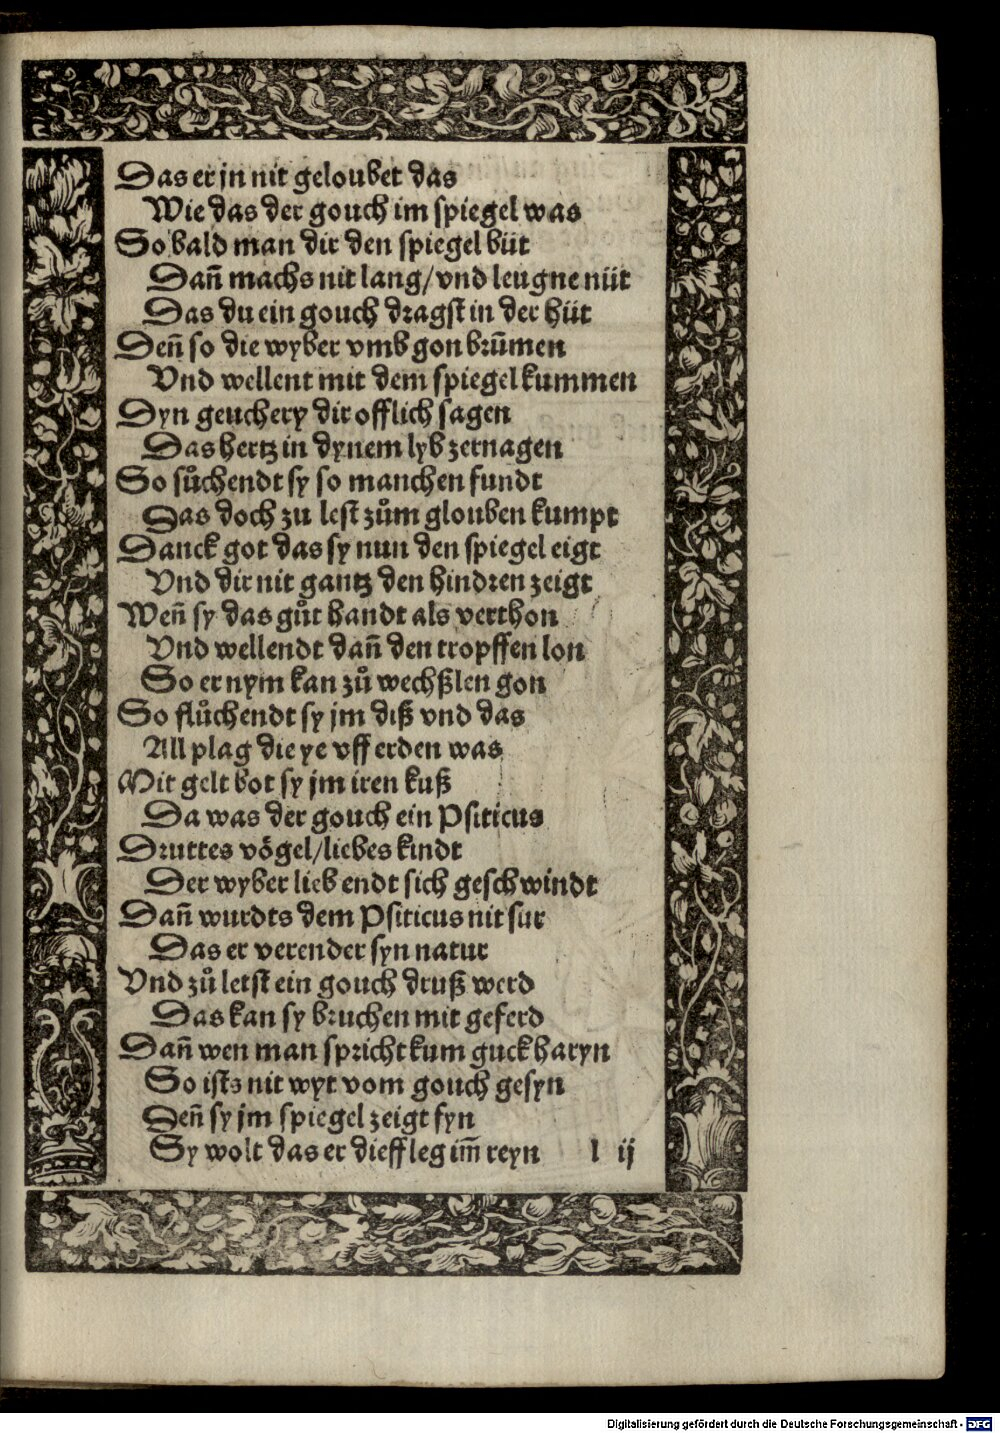 Das er jn nit geloubet das
Wie das der gouch im spiegel was
So bald man dir den spiegel büt
Dañ machs nit lang/ vnd leugne nüt
Das du ein gouch dragst in der hüt
Deñ so die wyber vmb gon brūmen
Vnd wellent mit dem spiegel kummen
Dyn geuchery dir offlich sagen
Das hertz in dynem lyb zernagen
So sůchendt sy so manchen fundt
Das doch zu lest zům glouben kumpt
Danck got das sy nun den spiegel eigt
Vnd dir nit gantz den hindren zeigt
Weñ sy das gůt handt als verthon
Vnd wellendt dañ den tropffen lon
So er nym kan zů wechßlen gon
So flůchendt sy jm diß vnd das
All plag die ye vff erden was
Mit gelt bot sy jm iren kuß
Da was der gouch ein Psiticus
Druttes vögel/ liebes kindt
Der wyber lieb endt sich geschwindt
Dañ wurdts dem Psiticus nit sur
Das er verender syn natur
Vnd zů letst ein gouch druß werd
Das kan sy bruchen mit geferd
Dañ wen man spricht kum guck haryn
So ists nit wyt vom gouch gesyn
Deñ sy jm spiegel zeigt fyn
Sy wolt das er dieff leg im̄ reyn l ij
Digitalisierung gefördert durch die Deutsche Forschungsgemeinschaft - DFG